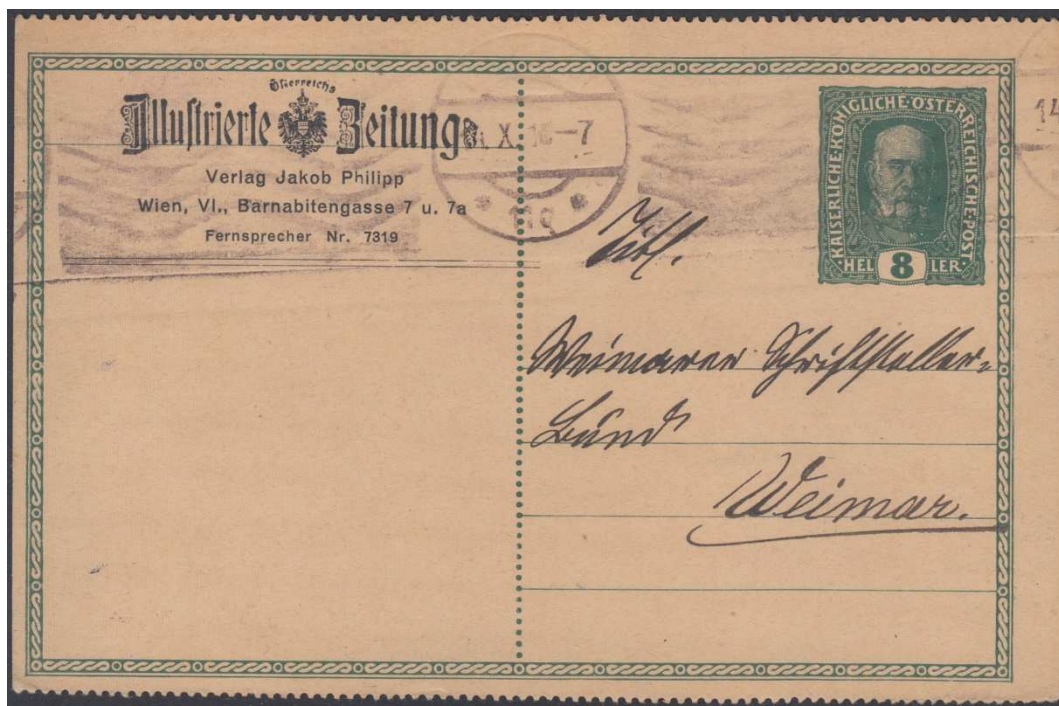 Österreichs
Illustrierte Zeitung
Verlag Jakob Philipp
Wien, VI., Barnabitengasse 7 u. 7a
Fernsprecher Nr. 7319
X 16-7
KAISERLICHE·KÖNIGLICHE·ÖSTERREICHISCHE·POST
HELLER
8
Weimarer Schriftsteller-
Bund
Weimar.
14